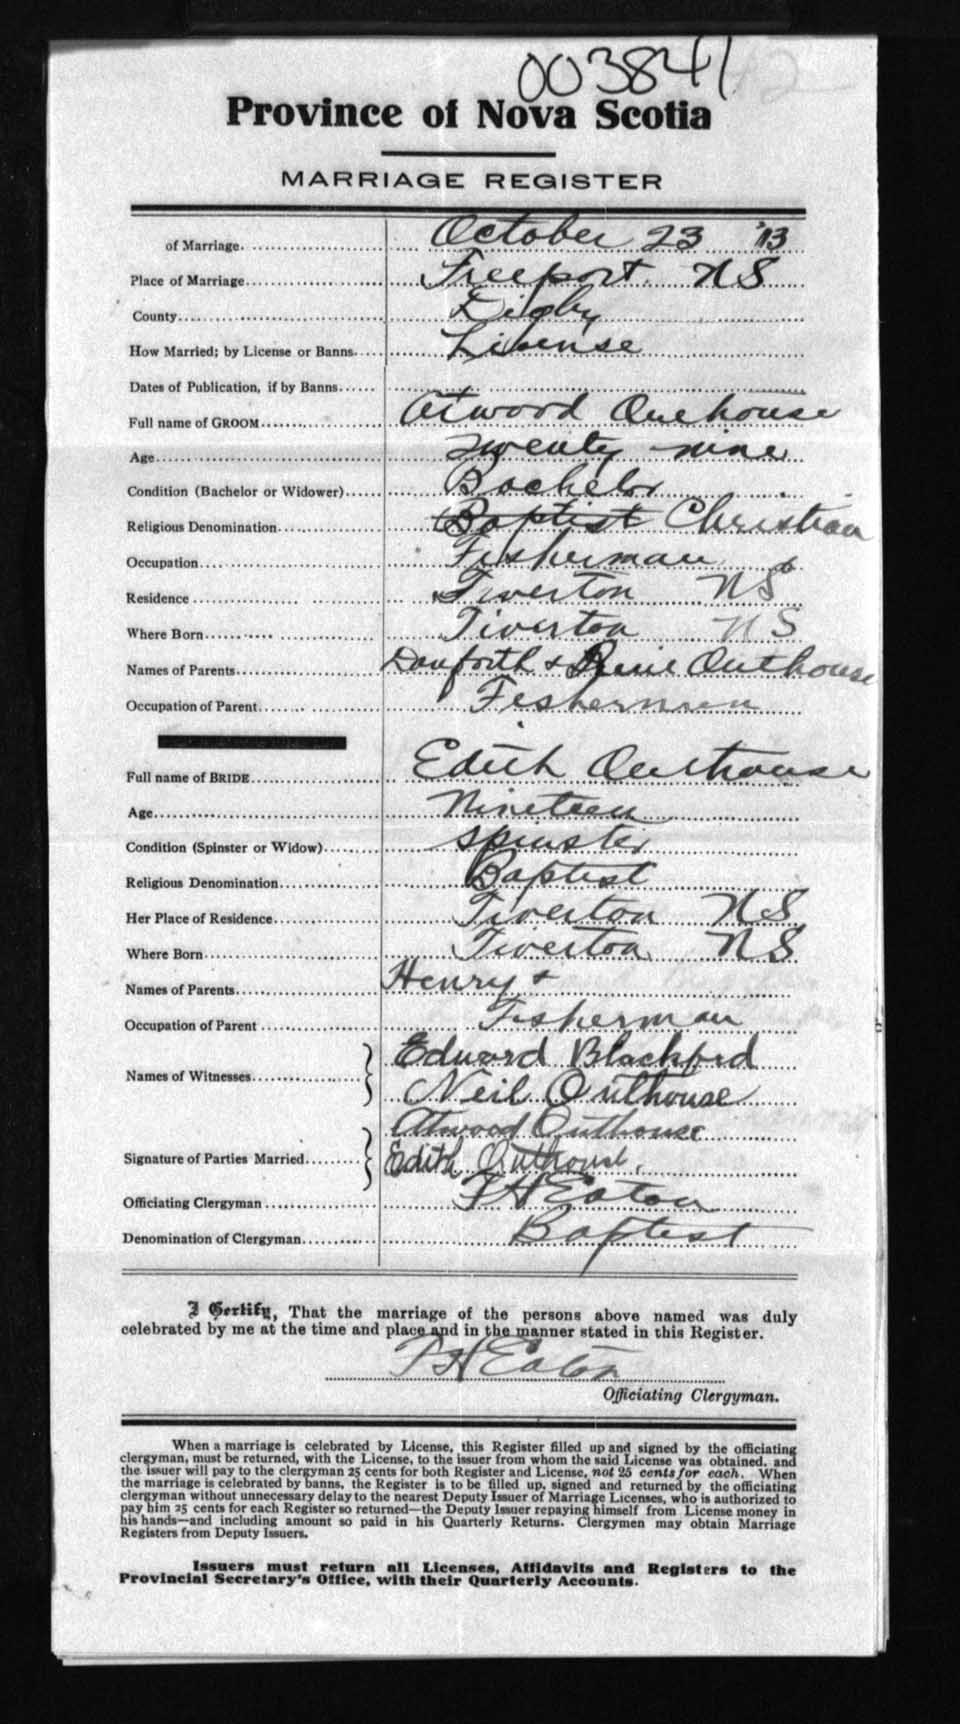 003841
Province of Nova Scotia
MARRIAGE REGISTER
of Marriage. October 23 '13
Place of Marriage Freeport NS
County Digby
How Married; by License or Banns License
Dates of Publication, if by Banns
Full name of GROOM Atwood Outhouse
Age Twenty nine
Condition (Bachelor or Widower) Bachelor
Religious Denomination Baptist Christian
Occupation Fisherman
Residence Tiverton NS
Where Born Tiverton NS
Names of Parents Danforth & Outhouse
Occupation of Parent Fisherman
Full name of BRIDE Edith Outhouse
Age Nineteen
Condition (Spinster or Widow) Spinster
Religious Denomination Baptist
Her Place of Residence Tiverton NS
Where Born Tiverton NS
Names of Parents Henry &
Occupation of Parent Fisherman
Names of Witnesses Edward Blackford
Neil Outhouse
Signature of Parties Married Atwood Outhouse
Edith Outhouse.
Officiating Clergyman F H Eaton
Denomination of Clergyman Baptist
I Certify, That the marriage of the persons above named was duly
celebrated by me at the time and place and in the manner stated in this Register.
F H Eaton
Officiating Clergyman.
When a marriage is celebrated by License, this Register filled up and signed by the officiating
clergyman, must be returned, with the License, to the issuer from whom the said License was obtained. and
the issuer will pay to the clergyman 25 cents for both Register and License, not 25 cents for each. When
the marriage is celebrated by banns, the Register is to be filled up, signed and returned by the officiating
clergyman without unnecessary delay to the nearest Deputy Issuer of Marriage Licenses, who is authorized to
pay him 25 cents for each Register so returned—the Deputy Issuer repaying himself from License money in
his hands—and including amount so paid in his Quarterly Returns. Clergymen may obtain Marriage
Registers from Deputy Issuers.
Issuers must return all Licenses, Affidavits and Registers to the
Provincial Secretary's Office, with their Quarterly Accounts.